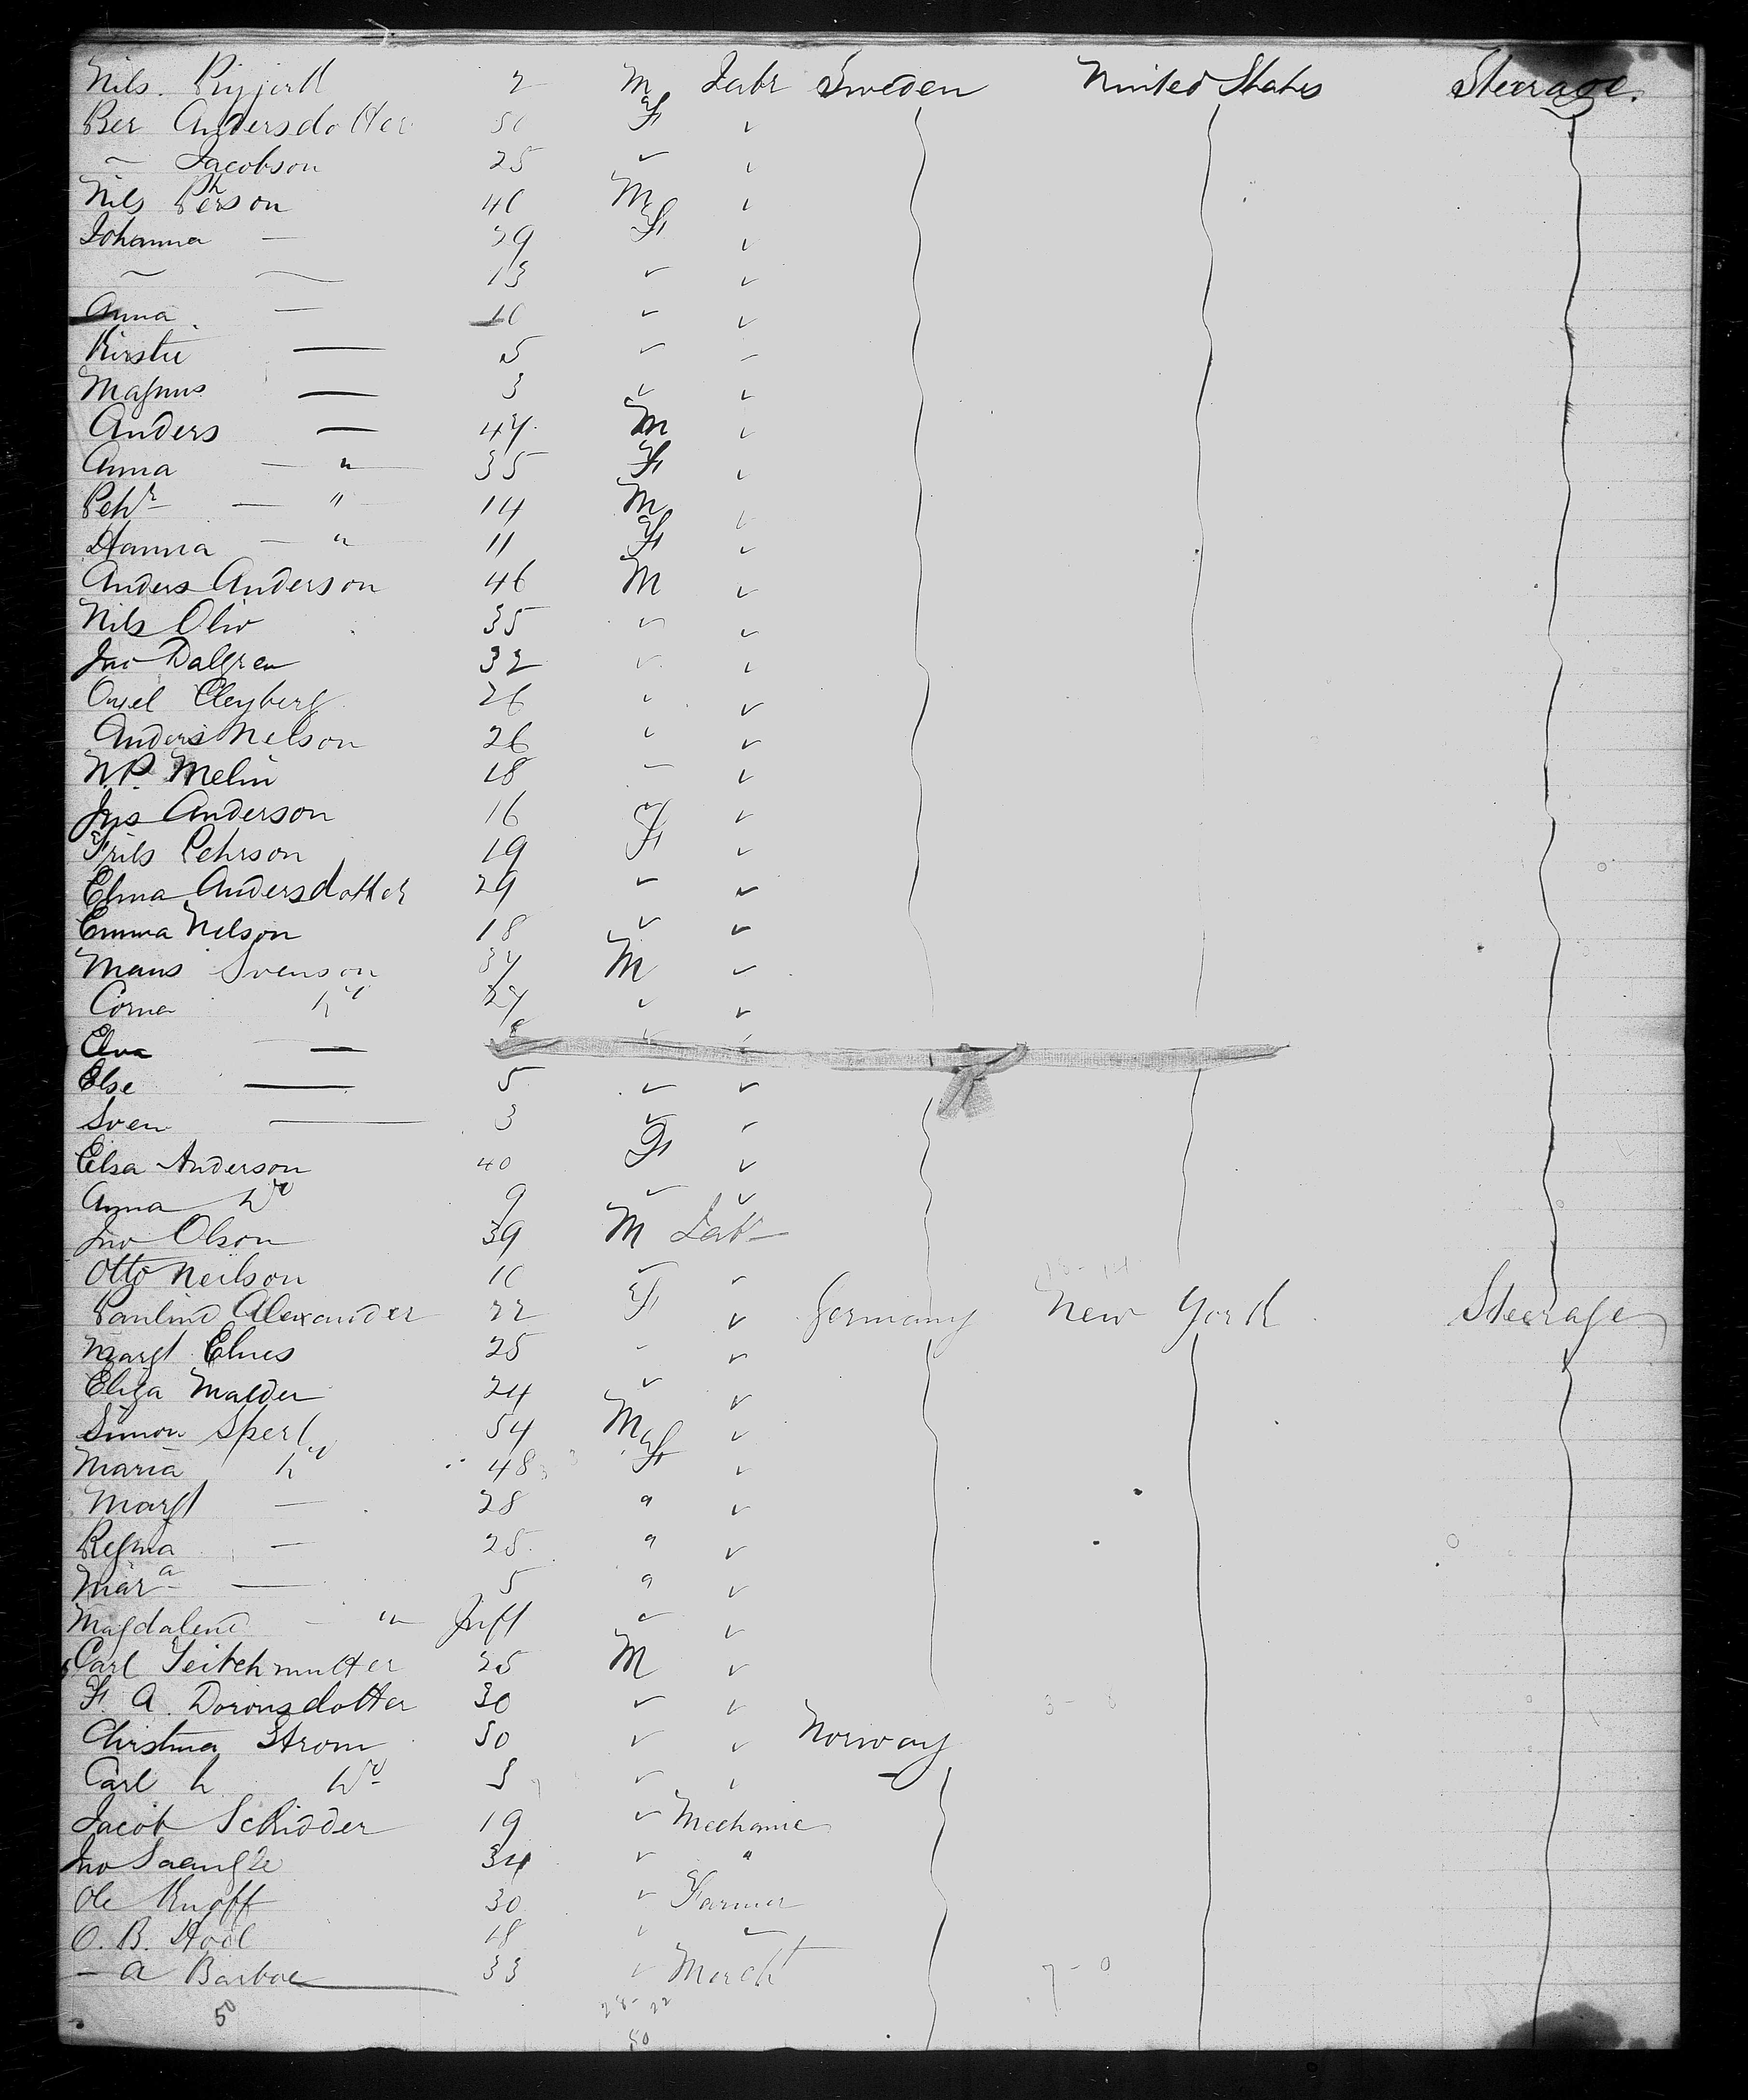 Nils. 2 M Labr Sweden United States Steerage.
Ber Andersdotter 50 F ✓
~ Jacobson 25 ✓ ✓
Nils Pehrson 40 M ✓
Johanna — 39 F ✓
~ ~ 13 ✓ ✓
Anna — 10 ✓ ✓
Kirstie — 5 ✓ –
Magnus — 3 ✓ ✓
Anders — 47 M ✓
Anna — " — 35 F ✓
Pehr — " 14 M ✓
Hanna — " 11 F ✓
Anders Anderson 46 M ✓
Nils Oliv 35 ✓ ✓
Jno Dalgren 32 ✓ ✓
Cleyberg 26 ✓ ✓
Anders Nelson 26 ✓ ✓
N.P. Melin 18 – ✓
Jns Anderson 16 ✓ ✓
Pehrson 19 F ✓
Elma Andersdotter 29 ✓ ✓
Emma Nelson 18 ✓ ✓
Mans Svenson 34 M ✓
Corna do 27 ✓ ✓
Elna —
Else — 5 ✓ ✓
Sven — 3 ✓ ✓
Elsa Anderson 40 F ✓
Anna do 9 ✓ ✓
Jno Olson 39 M Labr
Otto Neilson 10 ✓ ✓
Pauline Alexander 22 F ✓ Germany New York Steerage
Margt Elnes 25 – ✓
Eliza Malder 24 ✓ ✓
Simon Sperl 54 M ✓
Maria do 48 F ✓
Margt — 28 " ✓
Regina — 25 " ✓
Mara — 5 " ✓
Magdalena — " Inft ✓ ✓
Carl 25 M ✓
F. A. Doronsdotter 30 ✓ ✓
Christina Strom 50 ✓ ✓ Norway
Carl h do 5 ✓ ✓
Jacob Schidder 19 ✓ Mechanic
Jno 34 ✓ "
Ole Knoff 30 ✓ Farmer
O. B. Hoel 18 ✓ ✓
— A Barboe 33 ✓ Mercht 7 - 0
50 28 - 22
50